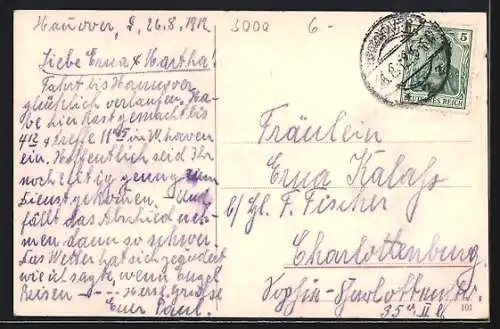 Hannover, d, 26.8.1912
Liebe Erna & Martha!
Fahrt bis Hannover
glücklich verlaufen. Ha-
be hier Rast gemacht bis
4 12 & treffe 11 45 in W'haven
ein. Hoffentlich seid Ihr
noch zeitig genug zum
Dienst gekommen. Und
fällt das Abschied neh-
men dann so schwer.
Das Wetter hat sich geändert
wie ich sagte, wenn Engel
Reisen - - - Herzl. Grüsse
Euer Paul.
300a 6-
5
DEUTSCHES REICH
Fräulein
Erna Kalass
b/ Hl. F. Fischer
Charlottenburg
Sophie-Charlotten Str.
35a II
101